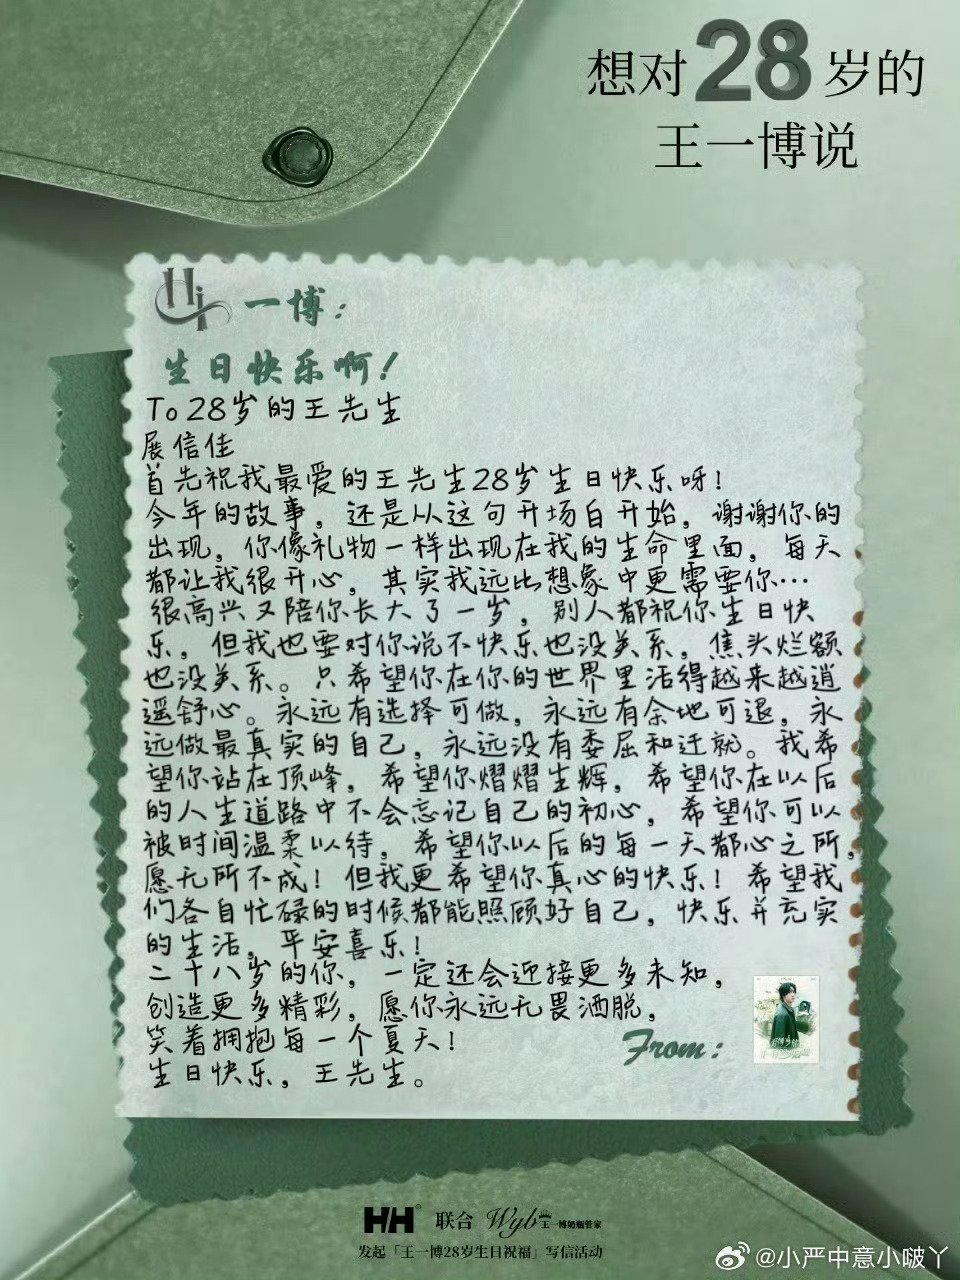 想对28岁的
王一博说
Hi 一博：
生日快乐啊！
To 28岁的王先生
展信佳
首先祝我最爱的王先生28岁生日快乐呀！
今年的故事，还是从这句开场白开始，谢谢你的
出现，你像礼物一样出现在我的生命里面，每天
都让我很开心，其实我远比想象中更需要你…
很高兴又陪你长大了一岁，别人都祝你生日快
乐，但我也要对你说不快乐也没关系，焦头烂额
也没关系。只希望你在你的世界里活得越来越逍
遥舒心。永远有选择可做，永远有余地可退，永
远做最真实的自己，永远没有委屈和迁就。我希
望你站在顶峰，希望你熠熠生辉，希望你在以后
的人生道路中不会忘记自己的初心，希望你可以
被时间温柔以待，希望你以后的每一天都心之所，
愿无所不成！但我更希望你真心的快乐！希望我
们各自忙碌的时候都能照顾好自己，快乐并充实
的生活，平安喜乐！
二十八岁的你，一定还会迎接更多未知，
创造更多精彩，愿你永远无畏洒脱，
笑着拥抱每一个夏天！
生日快乐，王先生。
From：
HH 联合 Wyb 王一博奶瓶管家
发起「王一博28岁生日祝福」写信活动
@小严中意小啵丫